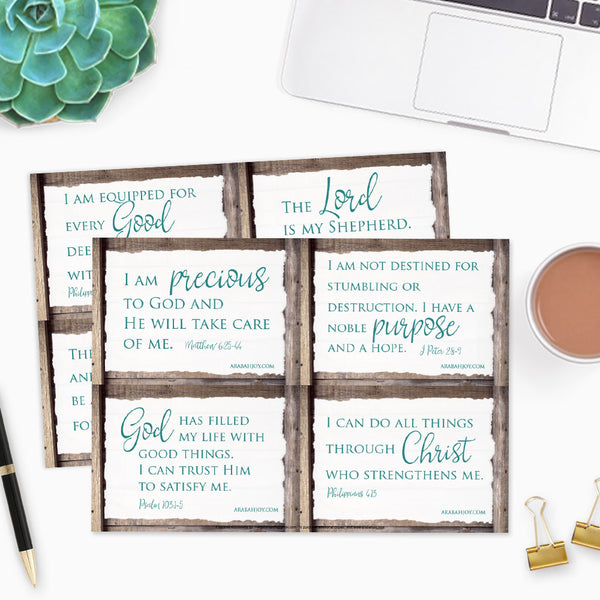 I AM EQUIPPED FOR
EVERY Good
DEE
WIT
Philippi
THE Lord
IS MY SHEPHERD.
THE
AND
BE
FO
I AM precious
TO GOD AND
HE WILL TAKE CARE
OF ME. Matthew 6:25-44
ARABAHJOY.COM
I AM NOT DESTINED FOR
STUMBLING OR
DESTRUCTION. I HAVE A
NOBLE purpose
AND A HOPE. 1 Peter 2:8-9
ARABAHJOY.COM
God HAS FILLED
MY LIFE WITH
GOOD THINGS.
I CAN TRUST HIM
TO SATISFY ME.
Psalm 103:1-5
ARABAHJOY.COM
I CAN DO ALL THINGS
THROUGH Christ
WHO STRENGTHENS ME.
Philippians 4:13
ARABAHJOY.COM